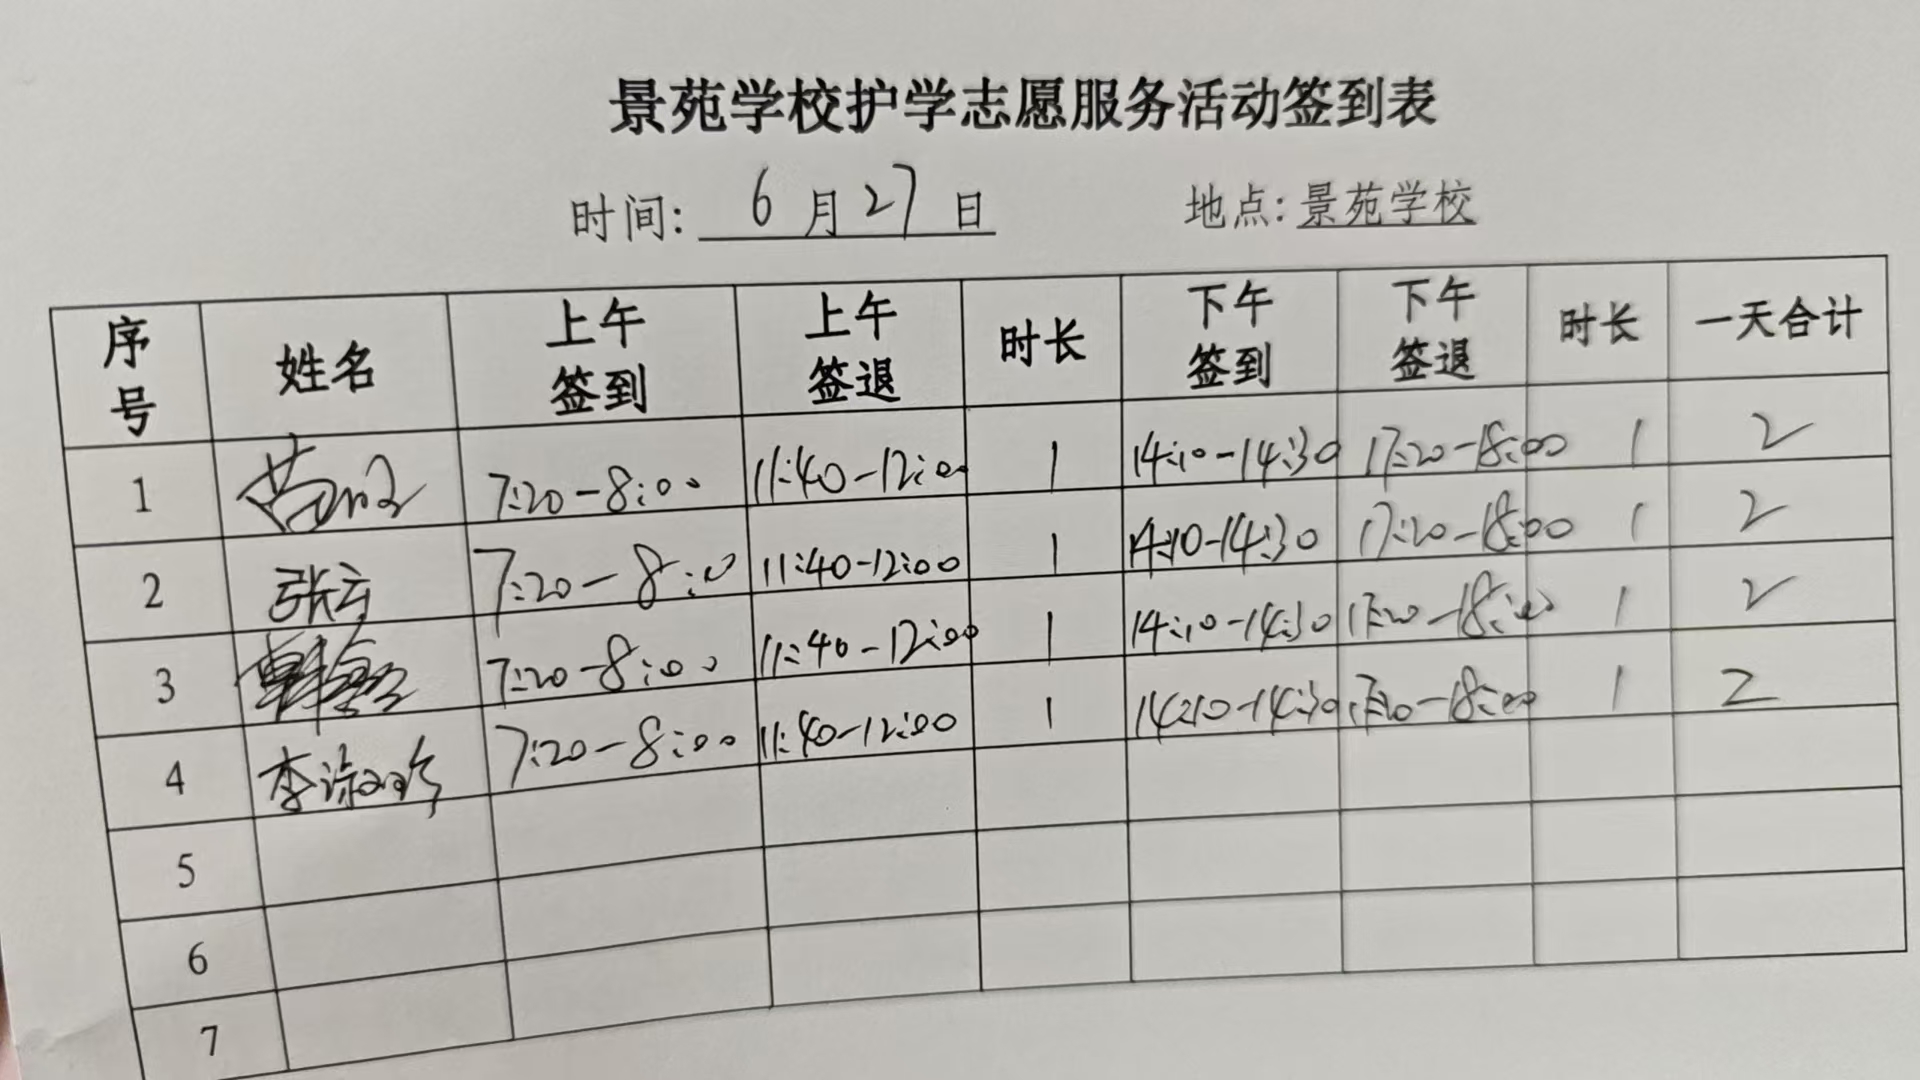 景苑学校护学志愿服务活动签到表
时间: 6月27日 地点:景苑学校
序号 姓名 上午签到 上午签退 时长 下午签到 下午签退 时长 一天合计
1 7:20-8:00 11:40-12:00 1 14:10-14:30 17:20-18:00 1 2
2 张云 7:20-8:00 11:40-12:00 1 14:10-14:30 17:20-18:00 1 2
3 7:20-8:00 11:40-12:00 1 14:10-14:30 17:20-18:00 1 2
4 李 7:20-8:00 11:40-12:00 1 14:10-14:30 17:20-18:00 1 2
5
6
7